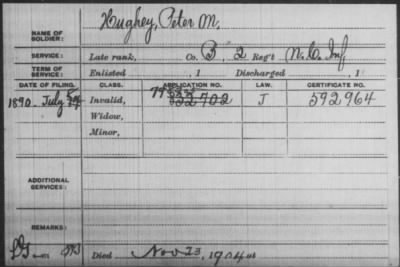 Hughey, Peter M.
NAME OF SOLDIER:
SERVICE: Late rank, Co. B, 2 Reg't N.C. Inf,
TERM OF SERVICE: Enlisted , 1 Discharged , 1
DATE OF FILING. CLASS. APPLICATION NO. LAW. CERTIFICATE NO.
1890. July Invalid, 532702 J 592964
Widow,
Minor,
ADDITIONAL SERVICES:
REMARKS:
Died Nov 23, 1904 at